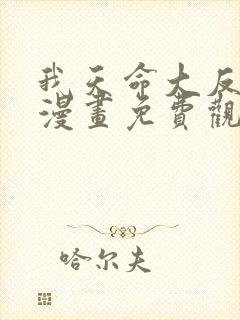 我天命大反
漫畫免費觀
哈尔夫